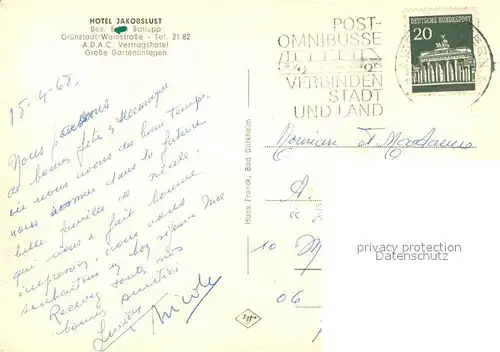 HOTEL JAKOBSLUST
Bes. Schupp
Grünstadt/Weinstraße - Tel: 21 82
A.D.A.C. Vertragshotel
Große Gartenanlagen
POST-
OMNIBUSSE
VERBINDEN
STADT
UND LAND
DEUTSCHE BUNDESPOST
20
15-4-68
Nous passons
de bonnes fêtes en Allemagne
où nous avons du beau temps.
nous sommes dans la future
belle famille de Nicole.
qui nous a fait bonne
impression. nous vous
souhaitons un bon séjour à
Recevez toutes nos
bonnes amitiés
Lucien
Nicole
Hans Franck, Bad Dürkheim.
Agfa
Monsieur et Madame
10
06
privacy protection
Datenschutz